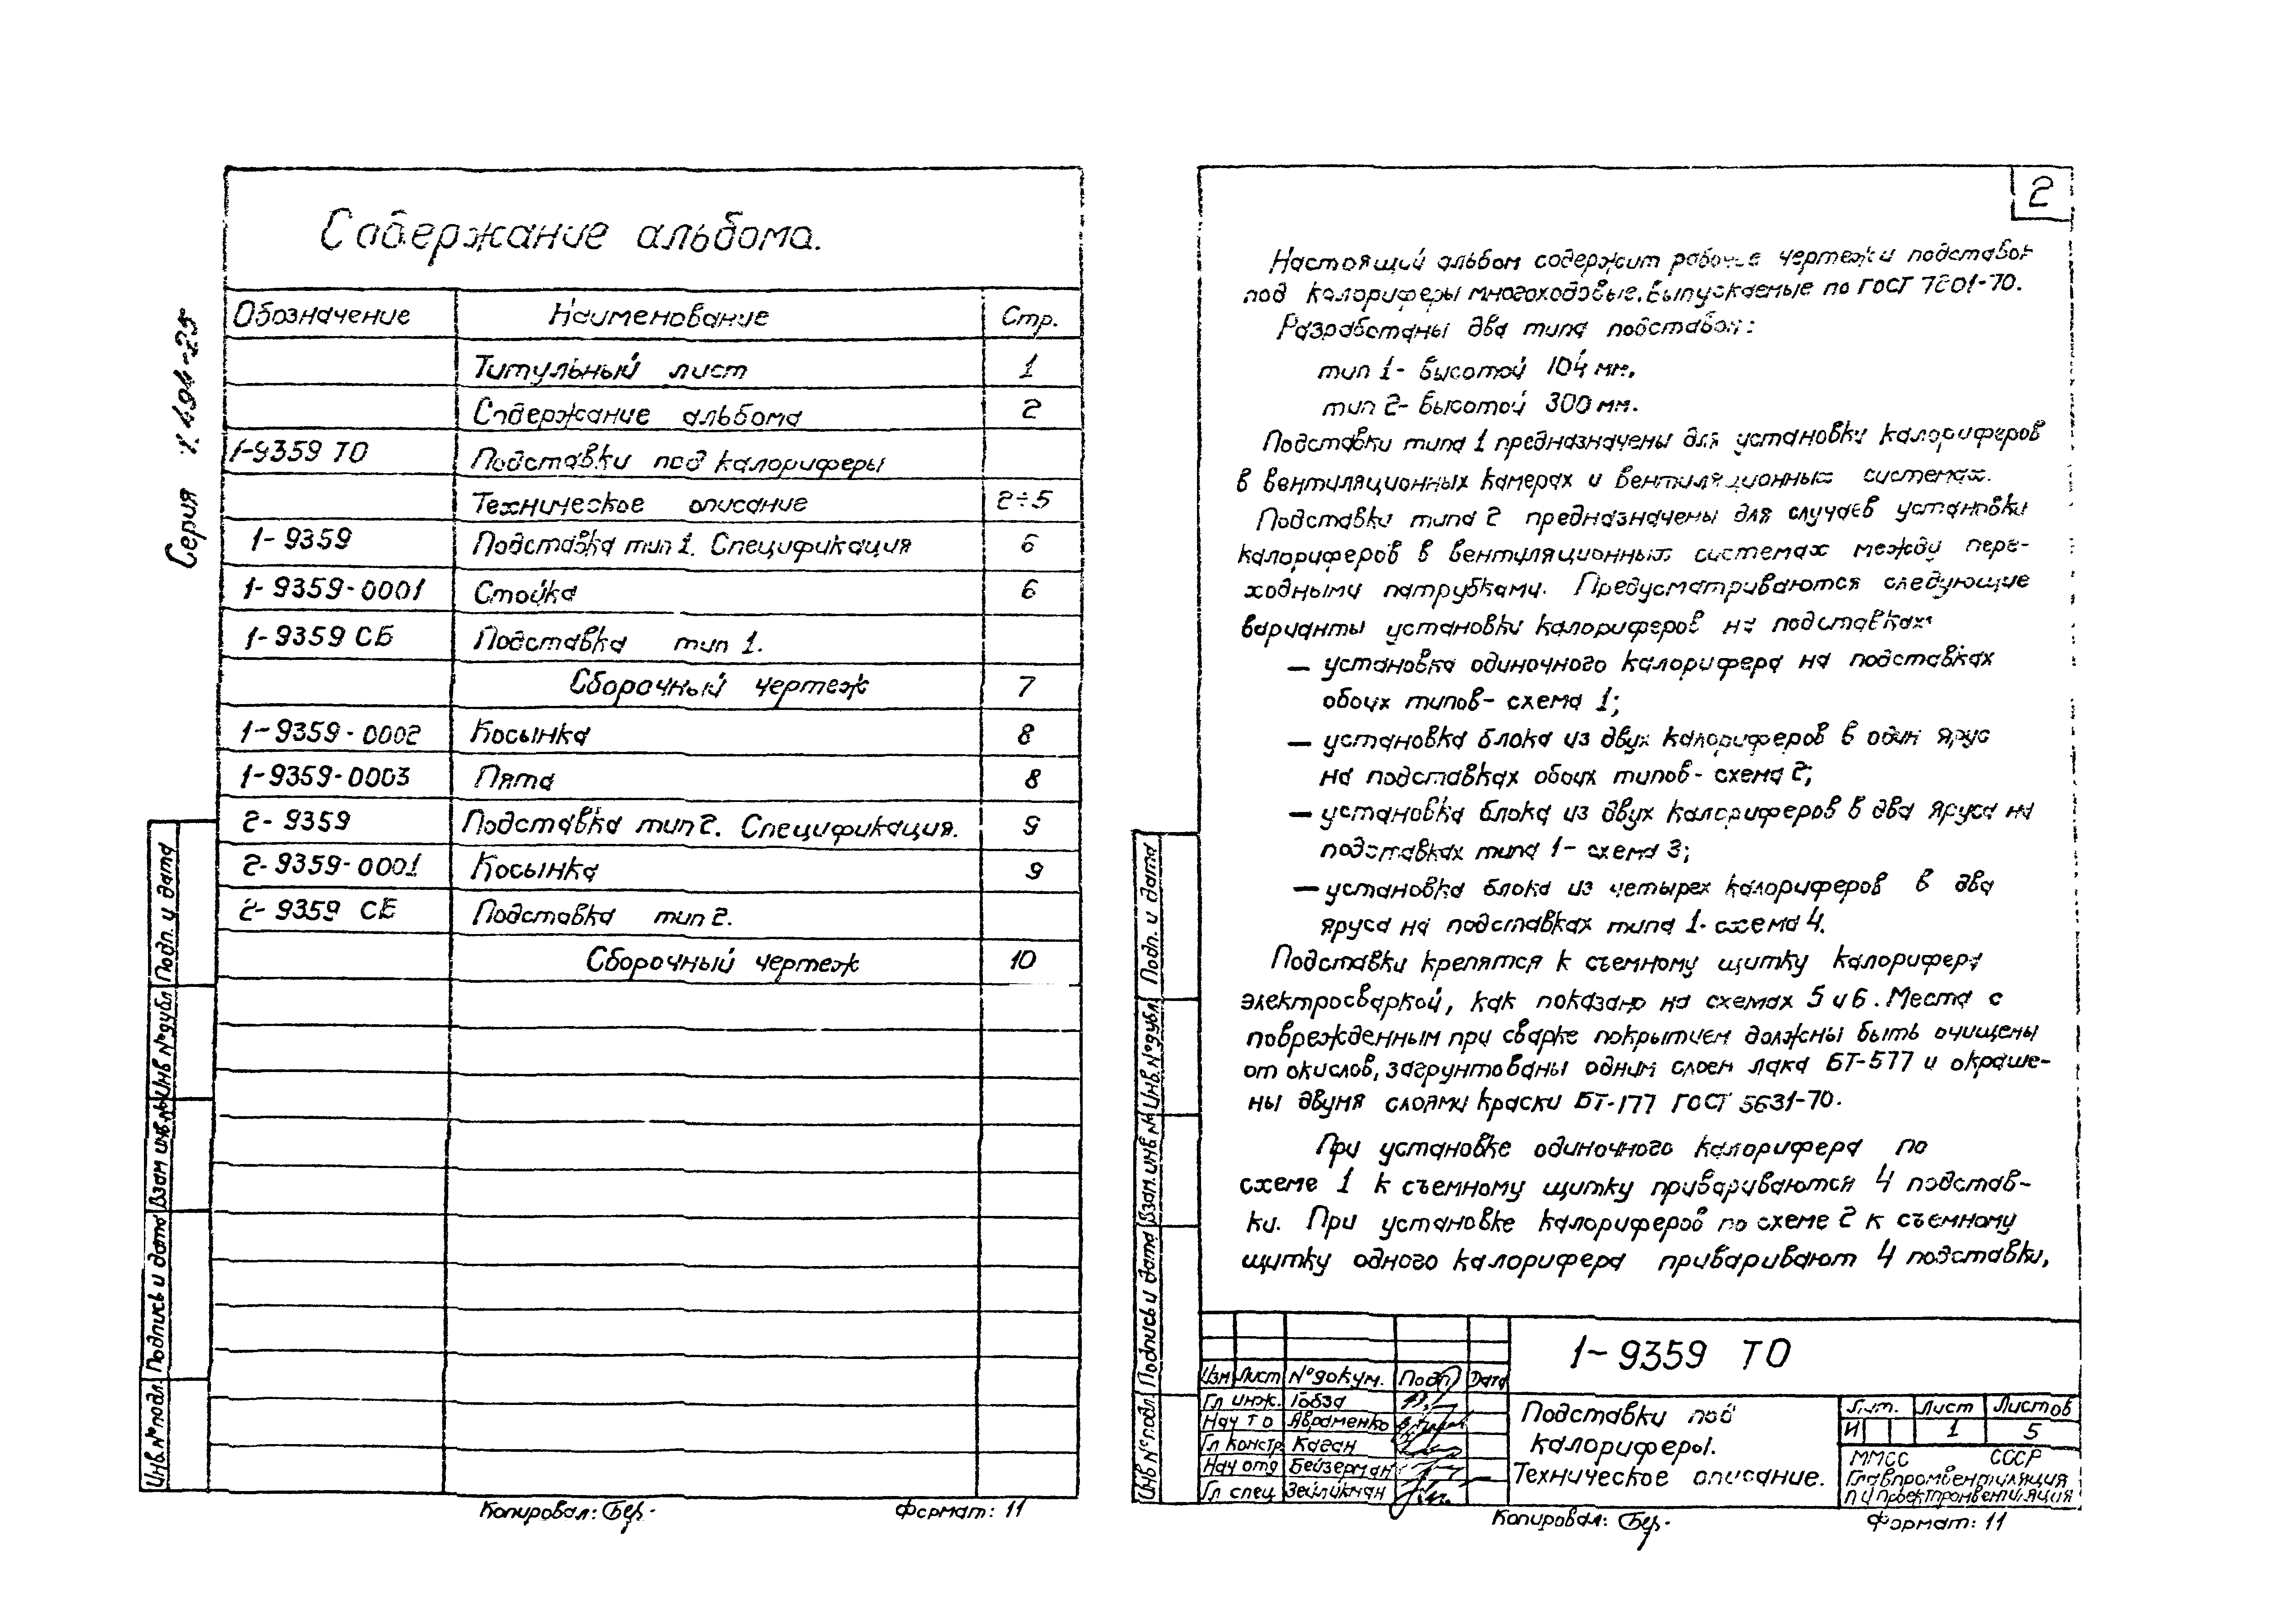 Серия 1.494-25
Содержание альбома.
Обозначение Наименование Стр.
Титульный лист 1
Содержание альбома 2
1-9359 ТО Подставки под калориферы
Техническое описание 2÷5
1-9359 Подставка тип 1. Спецификация 6
1-9359-0001 Стойка 6
1-9359 СБ Подставка тип 1.
Сборочный чертеж 7
1-9359-0002 Косынка 8
1-9359-0003 Пята 8
2-9359 Подставка тип 2. Спецификация. 9
2-9359-0001 Косынка 9
2-9359 СБ Подставка тип 2.
Сборочный чертеж 10
Подп. и дата
Инв № дубл
Взам инв. №
Подпись и дата
Инв. № подл.
Копировал: Формат: 11
2
Настоящий альбом содержит рабочие чертежи подставок
под калориферы многоходовые, выпускаемые по ГОСТ 7201-70.
Разработаны два типа подставок:
тип 1- высотой 104 мм,
тип 2- высотой 300 мм.
Подставки типа 1 предназначены для установки калориферов
в вентиляционных камерах и вентиляционных системах.
Подставки типа 2 предназначены для случаев установки
калориферов в вентиляционных системах между пере-
ходными патрубками. Предусматриваются следующие
варианты установки калориферов на подставках:
— установка одиночного калорифера на подставках
обоих типов- схема 1;
— установка блока из двух калориферов в один ярус
на подставках обоих типов- схема 2;
— установка блока из двух калориферов в два яруса на
подставках типа 1- схема 3;
— установка блока из четырех калориферов в два
яруса на подставках типа 1- схема 4.
Подставки крепятся к съемному щитку калорифера
электросваркой, как показано на схемах 5 и 6. Места с
поврежденным при сварке покрытием должны быть очищены
от окислов, загрунтованы одним слоем лака БТ-577 и окраше-
ны двумя слоями краски БТ-177 ГОСТ 5631-70.
При установке одиночного калорифера по
схеме 1 к съемному щитку привариваются 4 подстав-
ки. При установке калориферов по схеме 2 к съемному
щитку одного калорифера приваривают 4 подставки,
Подп. и дата
Инв. № дубл.
Взам. инв №
Подпись и дата
Инв № подл
1-9359 ТО
Изм Лист № докум. Подп Дата
Гл инж. Гобза
Нач ТО Авраменко
Гл констр Каган
Нач отд Бейзерман
Гл спец Зейликман
Подставки под
калориферы.
Техническое описание.
Лит. Лист Листов
И 1 5
ММСС СССР
Главпромвентиляция
ПИ Проектпромвентиляция
Копировал: Формат: 11